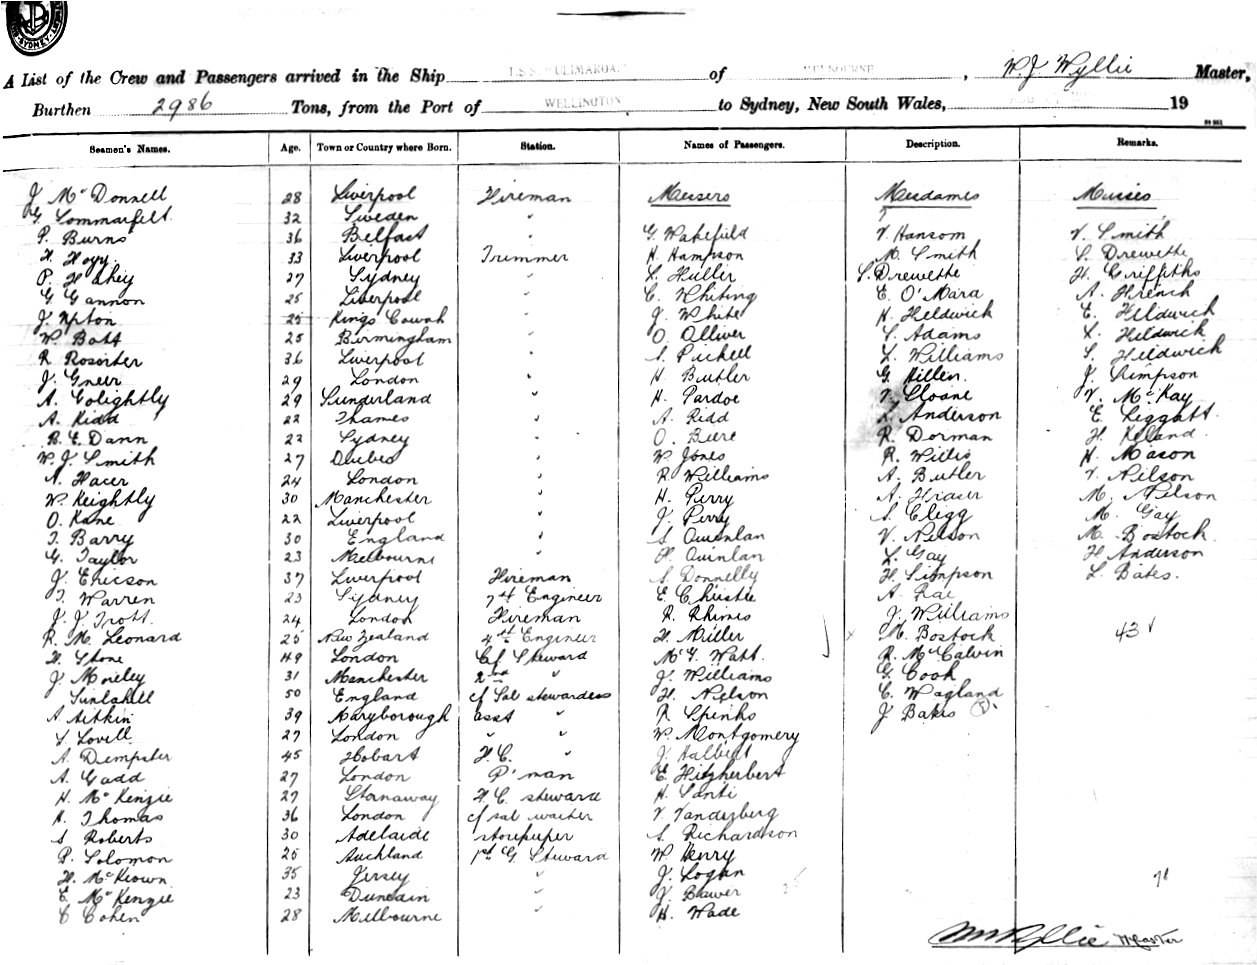 SYDNEY
A List of the Crew and Passengers arrived in the Ship T.S.S. ULIMAROA of MELBOURNE, W. J. Wyllie Master,
Burthen 2986 Tons, from the Port of WELLINGTON to Sydney, New South Wales, 19
Seamen's Names. Age. Town or Country where Born. Station. Names of Passengers. Description. Remarks.
J McDonnell 28 Liverpool Fireman Messers Mesdames Misses
G. Sommarfelt 32 Sweden "
P. Burns 36 Belfast " G. Wakefield V. Hansom V. Smith
H. Hogg 33 Liverpool Trimmer H. Hampson M. Smith S. Drewette
P. Hahey 27 Sydney " L. Huller S. Drewette H. Griffiths
G Gannon 25 Liverpool " C. Whiting E. O'Mara A. French
J. Upton 25 Kings " J. White H. Heldwick E. Heldwick
W. Batt 25 Birmingham " O. Olliver S. Adams L. Heldwick
R Rosoiter 36 Liverpool " S. Puckell L. Williams S. Heldwich
J. Greer 29 London " H. Butler G. Killen. J. Simpson
A. Golightly 29 Sunderland " H. Pardoe V. Sloane V. McKay
A. Kidd 22 Thames " A. Kidd L. Anderson E. Leggatt.
R. E. Dann 22 Sydney " O. Biere R. Dorman H. Keland.
W. J. Smith 27 Quebec " W Jones R. Willis H. Mason
A. Hacer 24 London " R Williams A. Butler V. Nilson
W. Keightly 30 Manchester " H. Perry A. Fraser M. Nelson
O. Kane 22 Liverpool " J. Perry S. Clegg M. Gay
T. Barry 30 England " S. Quinlan V. Nelson M. Bostock.
G. Taylor 23 Melbourne " H. Quinlan L. Gay H Anderson
J. Ericson 37 Liverpool Fireman S. Donnelly H. Simpson L. Bates.
T. Warren 23 Sydney 7th Engineer E. Christie A. Rae
J. J Trott. 24 London Fireman R. Rhimes J. Williams
R. M. Leonard 25 New Zealand 4th Engineer H. Miller x M. Bostock 43
H. Stone 49 London Cf Steward McG. Watt. R. McCalvin
J. Moxley 31 Manchester 2nd " J. Williams G. Cook
Sunlahill 50 England cf Sal stewardess H. Nelson C. Wagland
A Aitkin 39 Maryborough asst " R Spinks J Bates
S. Lovell. 27 London " " W. Montgomery
A. Dempster 45 Hobart F. C. " J. Halbert
A. Gadd 27 London P'man E. Fitzherbert
H. McKenzie 27 Stornaway F. C. steward H. Santi
H. Thomas 36 London cf sal waiter V Vanderberg
S Roberts 30 Adelaide storekeeper S. Richardson
P. Solomon 25 Auckland 1st G. Steward W. Henry
H. McKeown 35 Jersey " J. Logan
E. McKenzie 23 Dunedin " J. Bawer
C Cohen 28 Melbourne " H. Wade
W J Wyllie Master